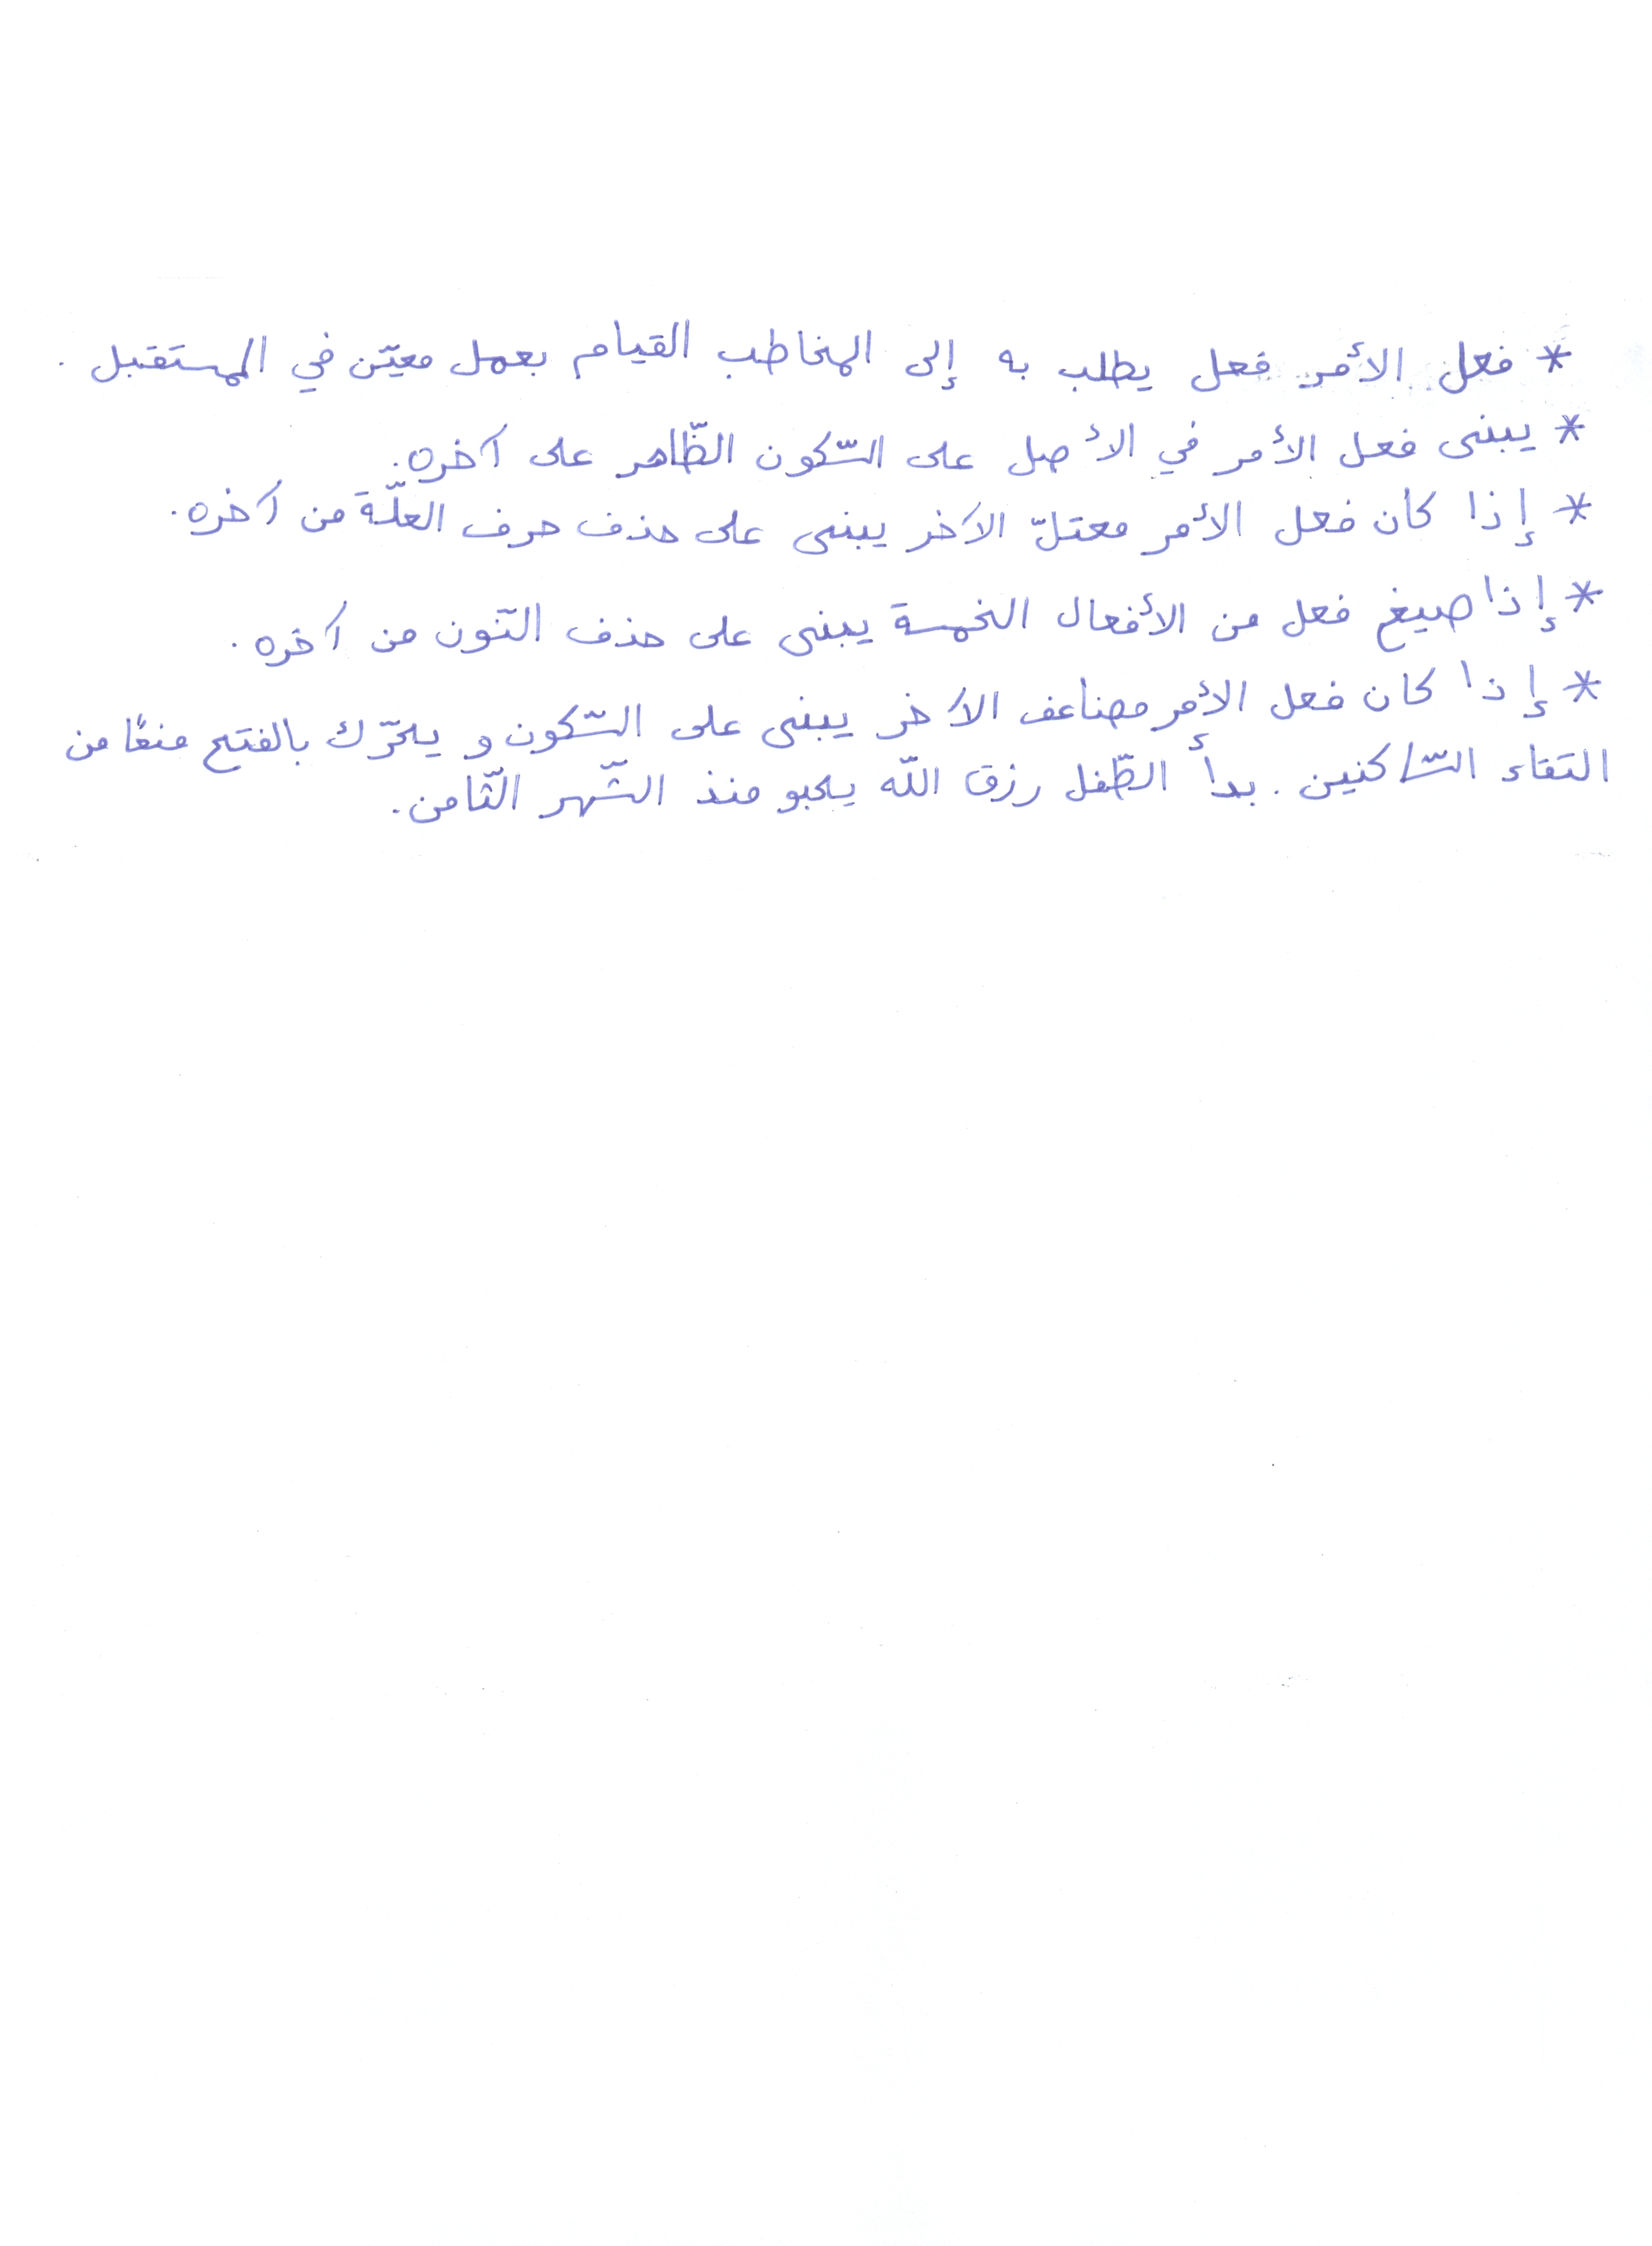 * فعل الأمر فعل يطلب به إلى المخاطب القيام بعمل معيّن في المستقبل .
* يبنى فعل الأمر في الأصل على السّكون الظّاهر على آخره.
* إذا كان فعل الأمر معتلّ الآخر يبنى على حذف حرف العلّة من آخره.
* إذا صيغ فعل من الأفعال الخمسة يبنى على حذف النّون من آخره .
* إذا كان فعل الأمر مضاعف الآخر يبنى على السّكون و يحرّك بالفتح منعًا من
التقاء السّاكنين . بدأ الطّفل رزق اللّه يحبو منذ الشّهر الثّامن .